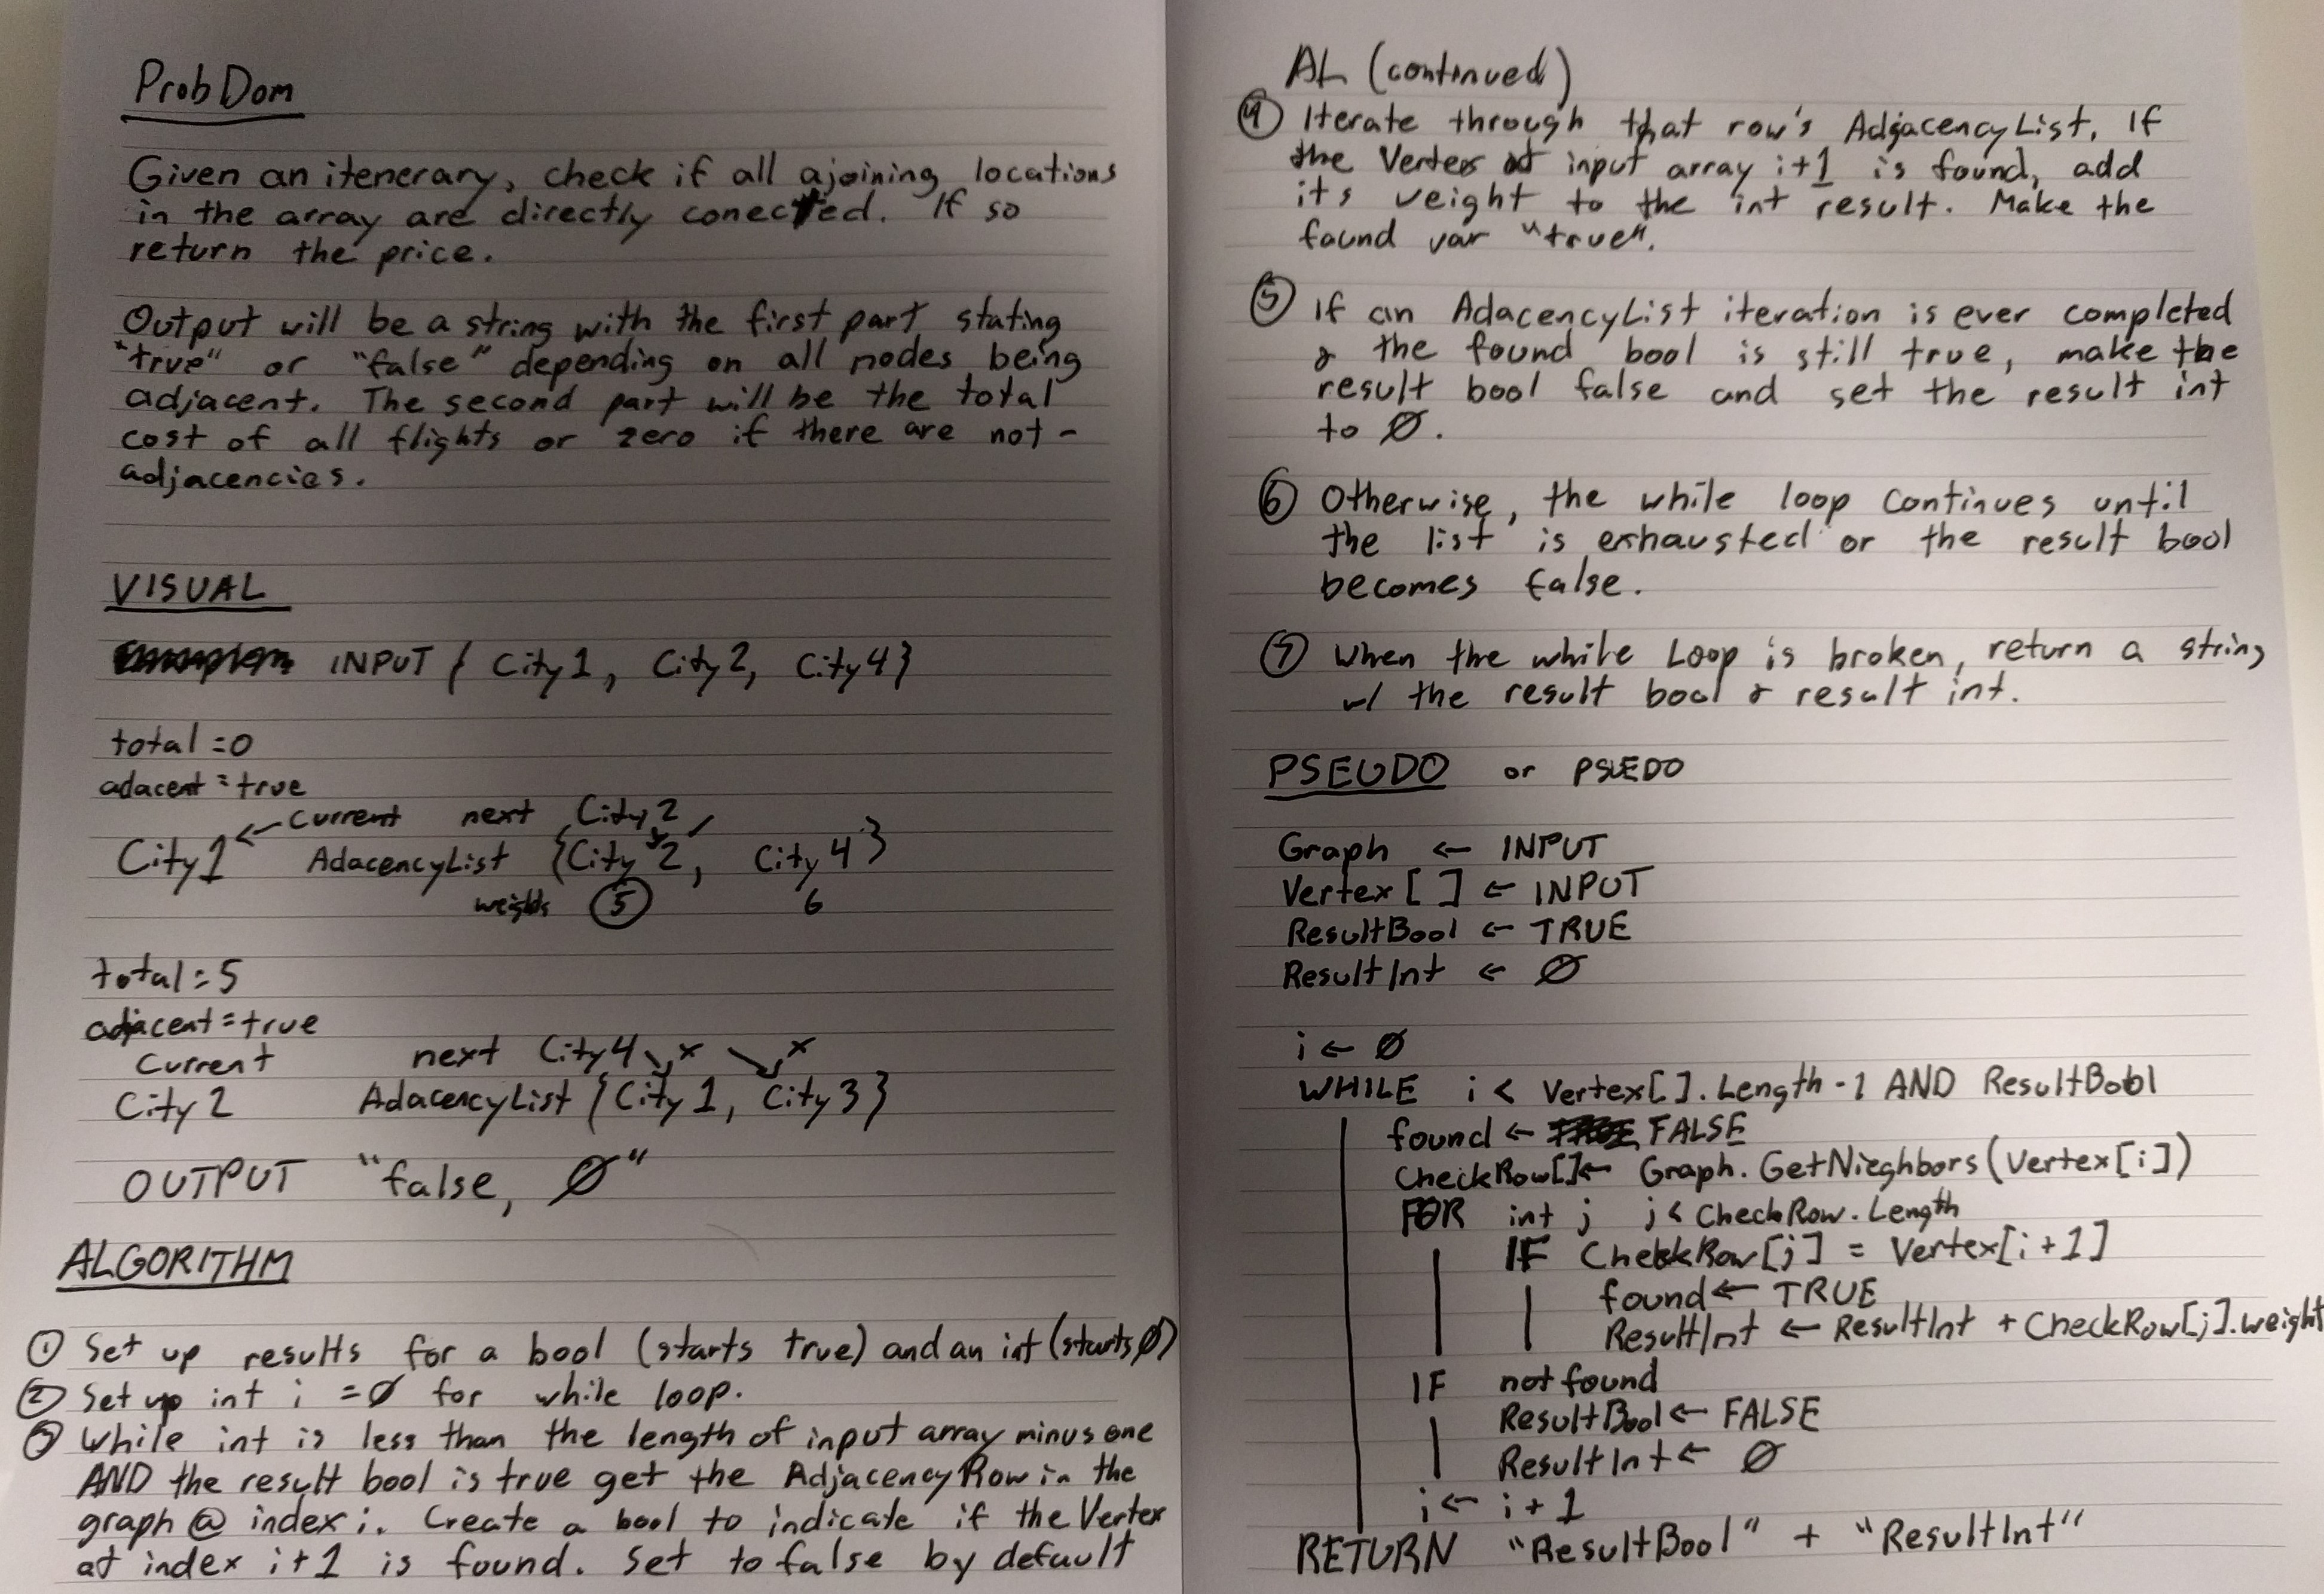 ProbDom
Given an itenerary, check if all ajoining locations
in the array are directly conected. If so
return the price.
Output will be a string with the first part stating
"true" or "false" depending on all nodes being
adjacent. The second part will be the total
cost of all flights or zero if there are not-
adjacencies.
VISUAL
INPUT { City1, City2, City4}
total=0
adacent=true
← Current next City2
City1 AdacencyList {City 2, City4}
weights 5 6
total=5
adjacent=true
Current next City4 x x
City2 AdacencyList {City1, City3}
OUTPUT "false, Ø"
ALGORITHM
① Set up results for a bool (starts true) and an int (starts Ø)
② Set up int i =Ø for while loop.
③ While int is less than the length of input array minus one
AND the result bool is true get the AdjacencyRow in the
graph @ index i. Create a bool to indicate if the Vertex
at index i+1 is found. Set to false by default
AL (continued)
④ Iterate through that row's AdjacencyList. If
the Vertex at input array i+1 is found, add
it's weight to the int result. Make the
found var "true".
⑤ If an AdacencyList iteration is ever completed
& the found bool is still true, make the
result bool false and set the result int
to Ø.
⑥ Otherwise, the while loop continues until
the list is exhausted or the result bool
becomes false.
⑦ When the while Loop is broken, return a string
w/ the result bool & result int.
PSEUDO or PSUEDO
Graph ← INPUT
Vertex[ ] ← INPUT
ResultBool ← TRUE
ResultInt ← Ø
i ← Ø
WHILE i < Vertex[].Length-1 AND ResultBool
found ← FALSE
CheckRow[]← Graph.GetNieghbors(Vertex[i])
FOR int j j< CheckRow.Length
IF CheckRow[j] = Vertex[i+1]
found ← TRUE
ResultInt ← ResultInt + CheckRow[j].weight
IF not found
ResultBool ← FALSE
ResultInt ← Ø
i ← i+1
RETURN "ResultBool" + "ResultInt"